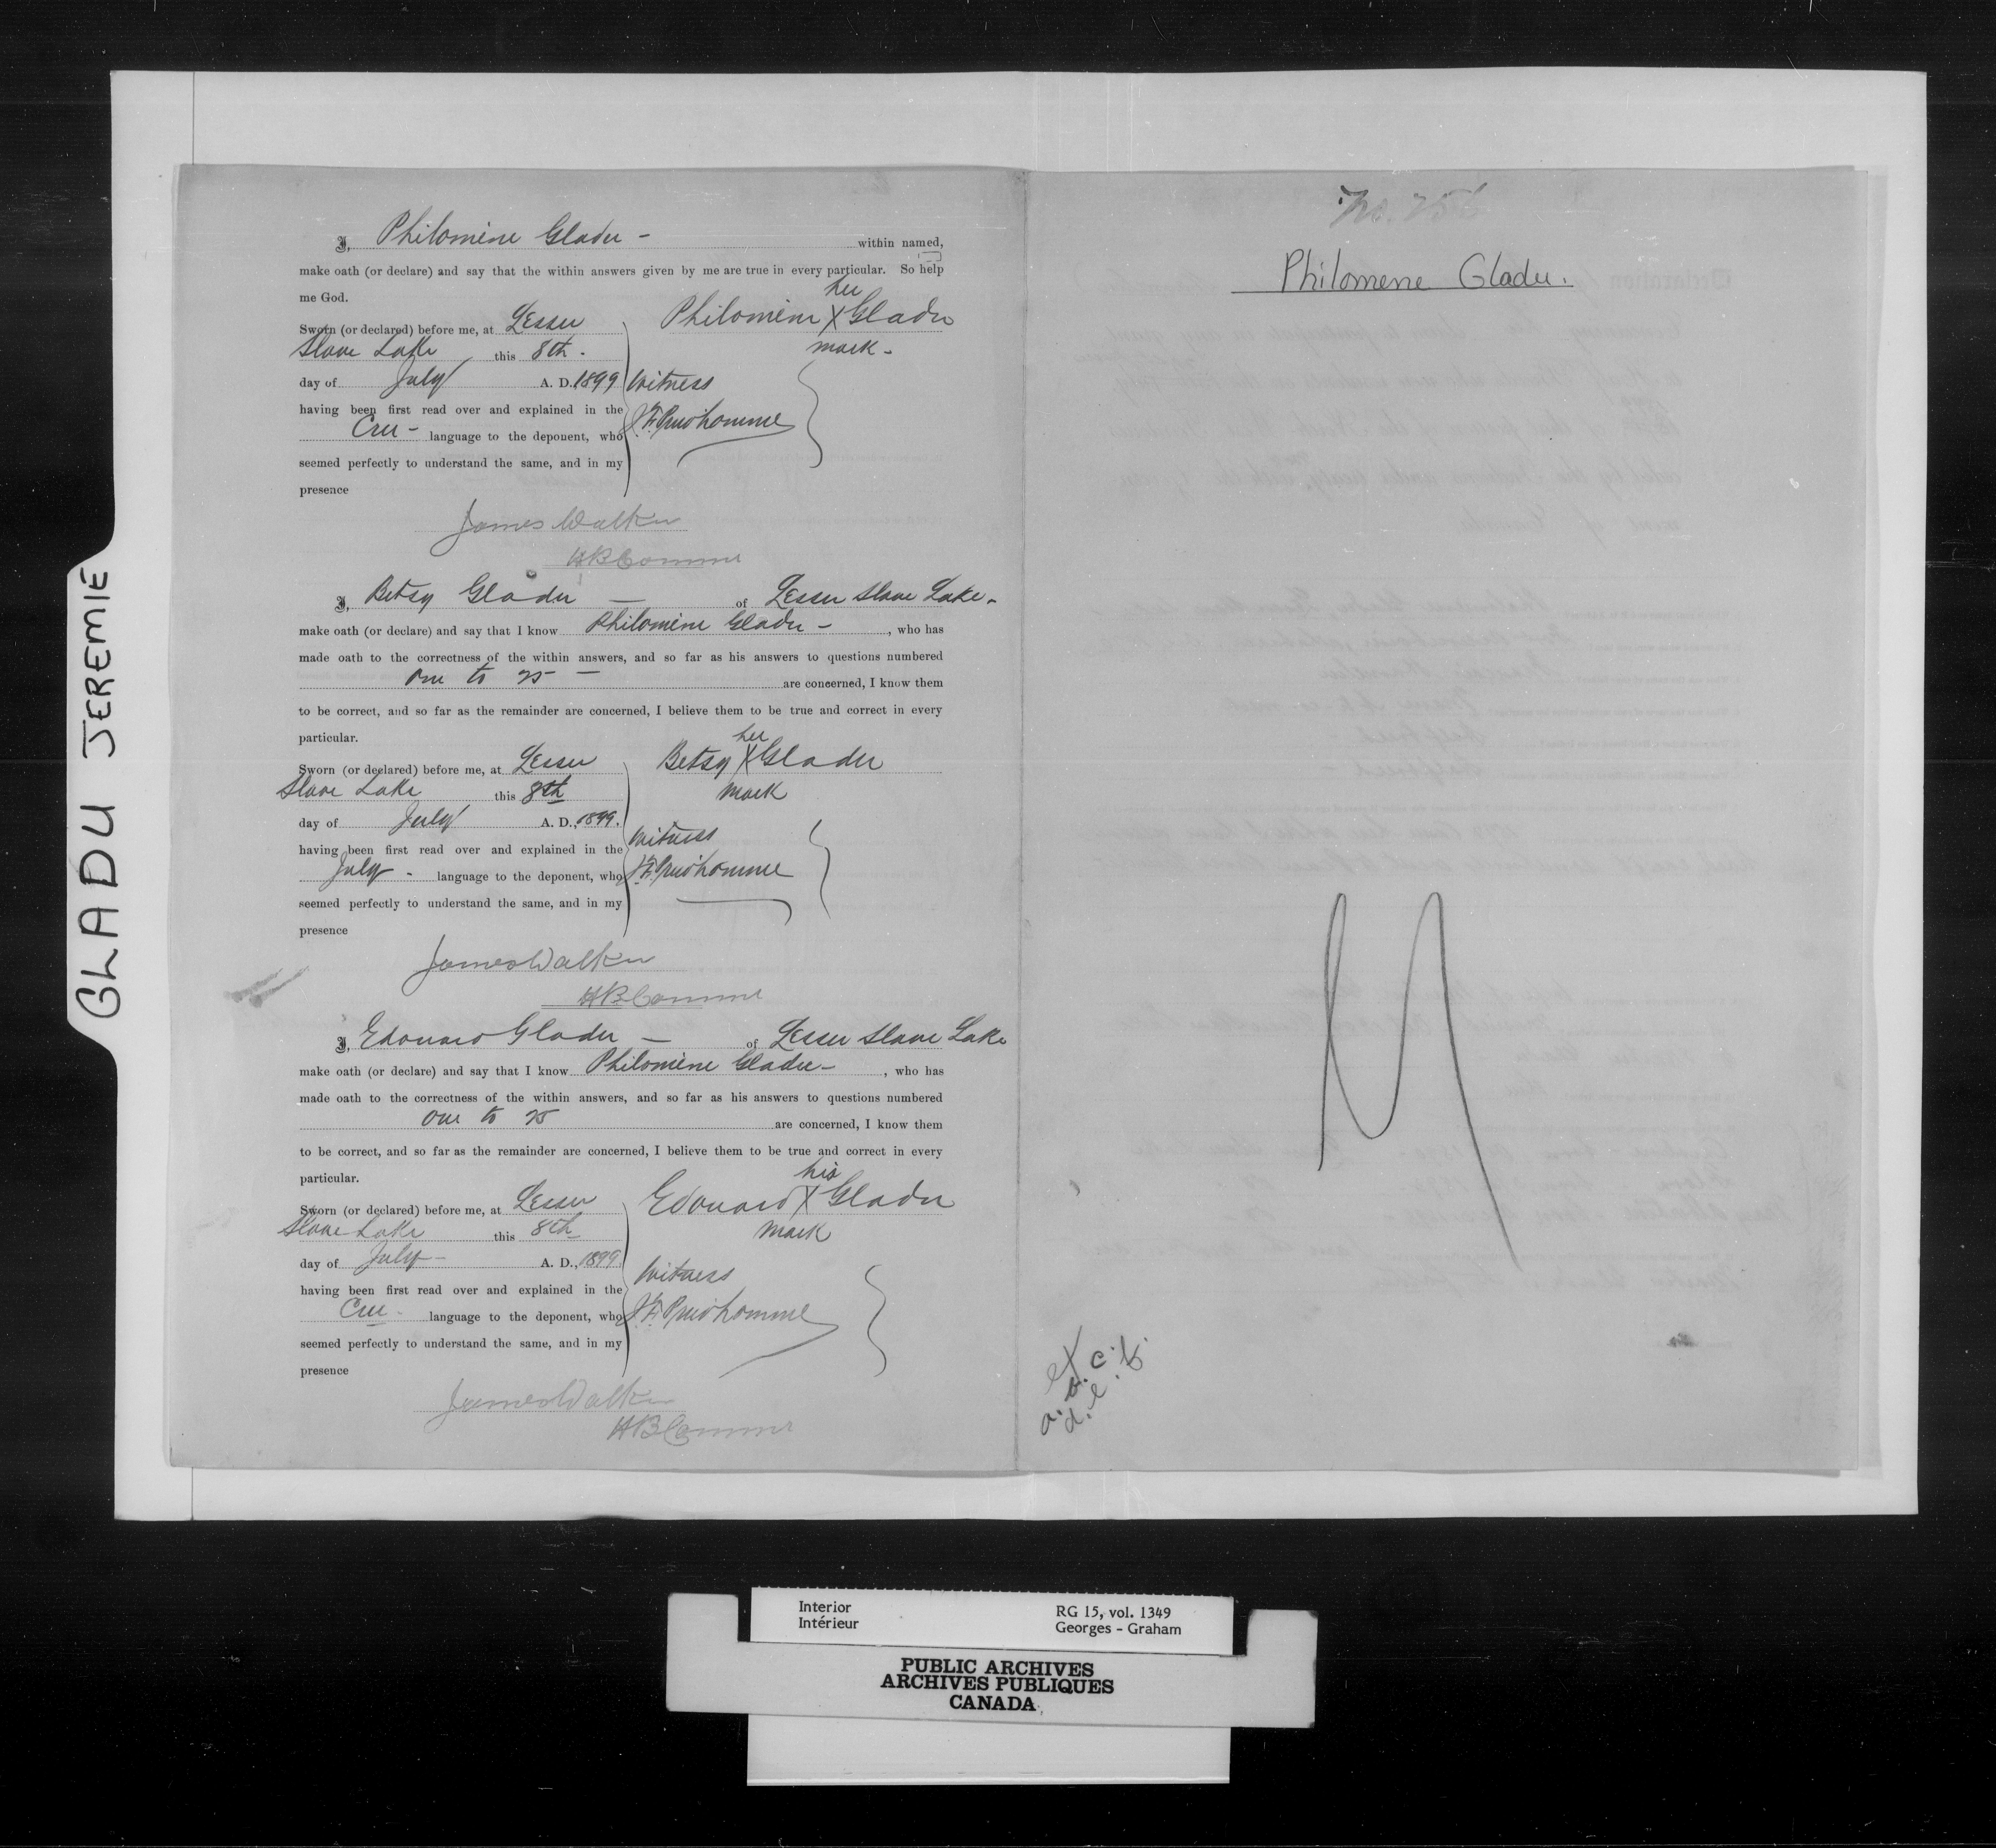 GLADU JEREMIE
I, Philomene Gladu - within named,
make oath (or declare) and say that the within answers given by me are true in every particular. So help
me God.
Sworn (or declared) before me, at Lesser
Slave Lake this 8th -
day of July A. D. 1899
having been first read over and explained in the
Cree - language to the deponent, who
seemed perfectly to understand the same, and in my
presence
her
Philomene X Gladu
mark -
Witness
Prudhomme
James Walker
HB Commr
I, Betsy Gladu — of Lesser Slave Lake -
make oath (or declare) and say that I know Philomene Gladu - , who has
made oath to the correctness of the within answers, and so far as his answers to questions numbered
One to 25 — are concerned, I know them
to be correct, and so far as the remainder are concerned, I believe them to be true and correct in every
particular.
Sworn (or declared) before me, at Lesser
Slave Lake this 8th
day of July A. D., 1899.
having been first read over and explained in the
July - language to the deponent, who
seemed perfectly to understand the same, and in my
presence
her
Betsy X Gladu
mark
Witness
Prudhomme
James Walker
HB Commr
I, Edouard Gladu — of Lesser Slave Lake
make oath (or declare) and say that I know Philomene Gladu - , who has
made oath to the correctness of the within answers, and so far as his answers to questions numbered
One to 25 are concerned, I know them
to be correct, and so far as the remainder are concerned, I believe them to be true and correct in every
particular.
Sworn (or declared) before me, at Lesser
Slave Lake this 8th
day of July - A. D., 1899.
having been first read over and explained in the
Cree - language to the deponent, who
seemed perfectly to understand the same, and in my
presence
his
Edouard X Gladu
mark
Witness
Prudhomme
James Walker
HB Commr
Philomene Gladu.
Interior
Intérieur
RG 15, vol. 1349
Georges - Graham
PUBLIC ARCHIVES
ARCHIVES PUBLIQUES
CANADA